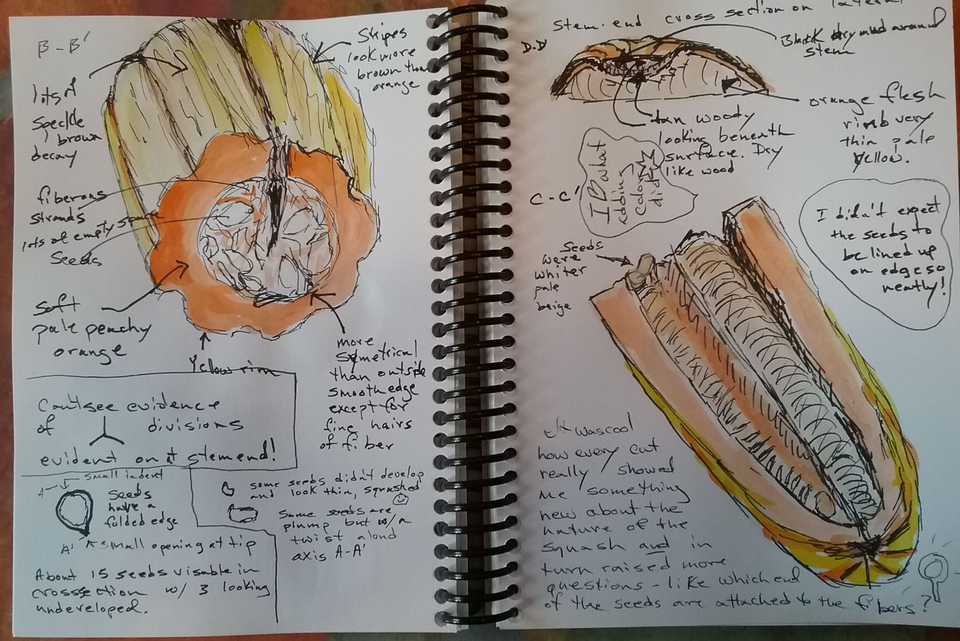 B-B'
Stripes
look more
brown than
orange
lots of
speckle
brown
decay
fiberous
strands
lots of empty space
Seeds
soft
pale peachy
orange
Yellow rim
more
symetrical
than outside
smooth edge
except for
fine hairs
of fiber
Can't see evidence
of divisions
evident on stem end!
small indent
A
seeds
have a
folded edge
A' small opening at tip
some seeds didn't develop
and look thin, squashed
Some seeds are
plump but w/ a
twist along
axis A-A'
About 15 seeds visible in
crosssection w/ 3 looking
undeveloped.
Stem-end cross section on
D-D'
Black dry mud around
stem
tan woody
looking beneath
surface. Dry
like wood
orange flesh
rind very
thin pale
yellow.
what
adding
color
did
C-C'
Seeds
were
whiter
pale
beige
I didn't expect
the seeds to
be lined up
on edge so
neatly!
It was cool
how every cut
really showed
me something
new about the
nature of the
squash and in
turn raised more
questions - like which end
of the seeds are attached to the fibers?